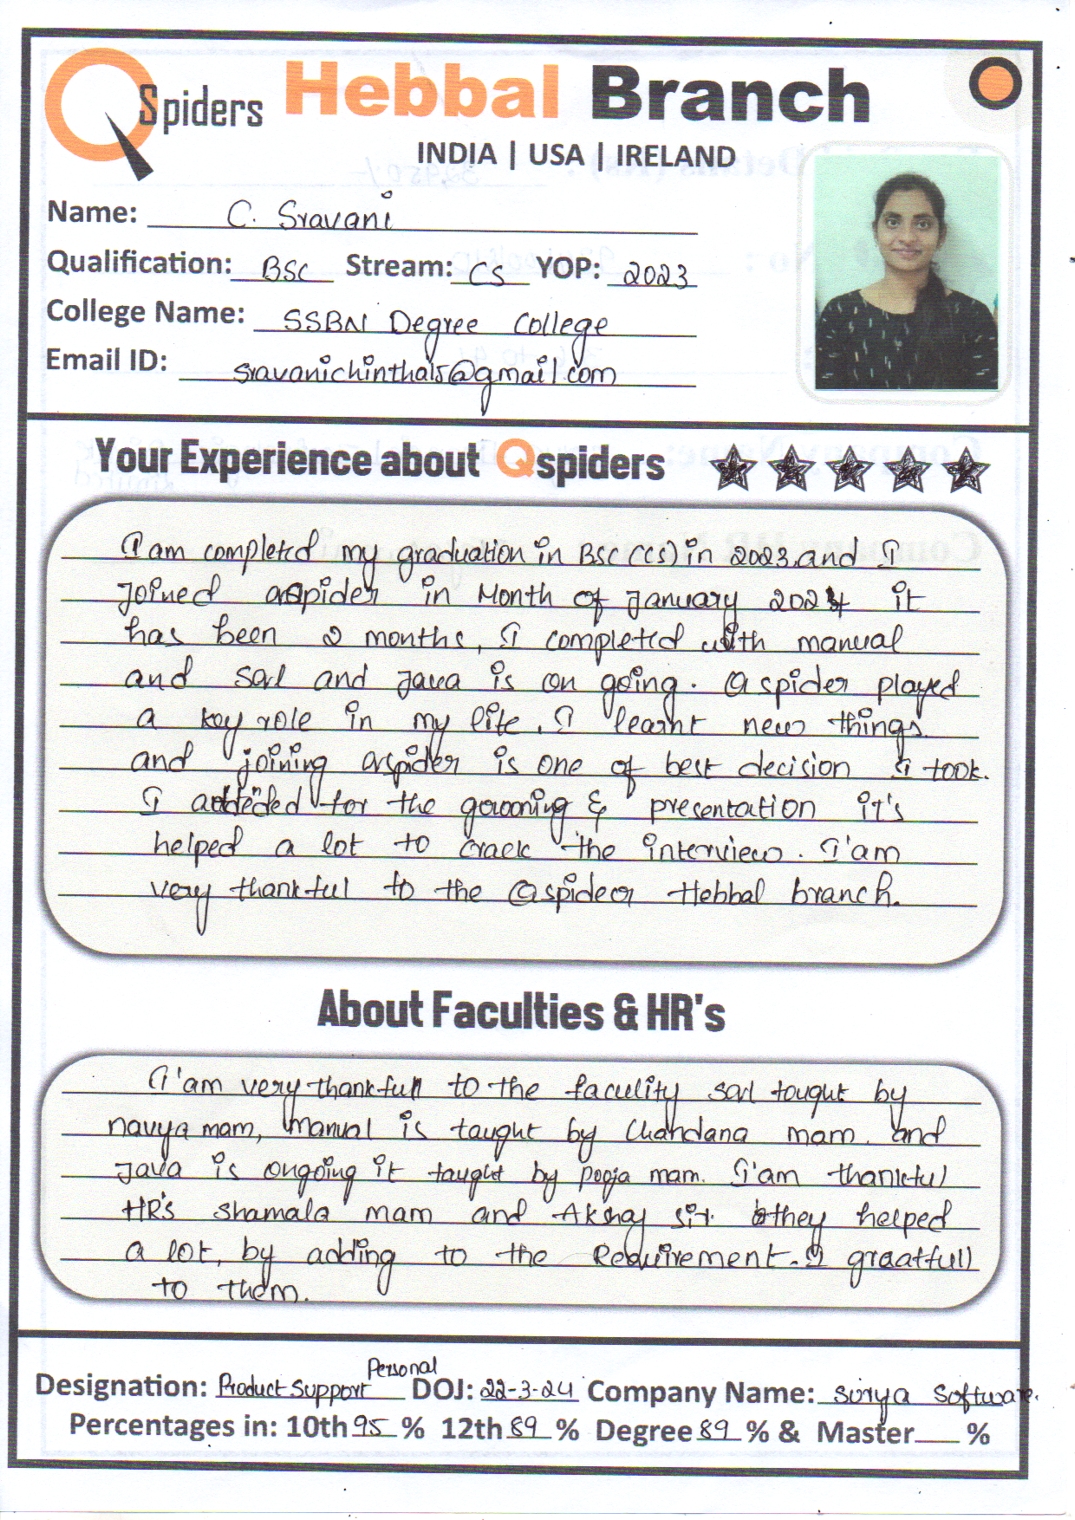 QSpiders Hebbal Branch
INDIA | USA | IRELAND
Name: C. Sravani
Qualification: BSC Stream: CS YOP: 2023
College Name: SSBN Degree College
Email ID: sravanichinthals@gmail.com
Your Experience about Qspiders
I am completed my graduation in BSC (CS) in 2023, and I
Joined Qspider in Month of January 2024 it
has been 2 months, I completed with manual
and Sql and Java is on going. Qspider played
a key role in my life, I learnt new things.
and joining Qspider is one of best decision I took.
I for the grooning & presentation it's
helped a lot to crack the interview. I'am
very thankful to the Qspider Hebbal branch.
About Faculties & HR's
I'am very thankfull to the faculity sql tought by
navya mam, manual is taught by Chandana mam. and
Java is ongoing it taught by pooja mam. I'am thankful
HR's shamala mam and Akshay sir. they helped
a lot, by adding to the Requirement. I graatfull
to them.
Designation: Product Support Personal DOJ: 22-3-24 Company Name: Surya Software.
Percentages in: 10th 95 % 12th 89 % Degree 89 % & Master %